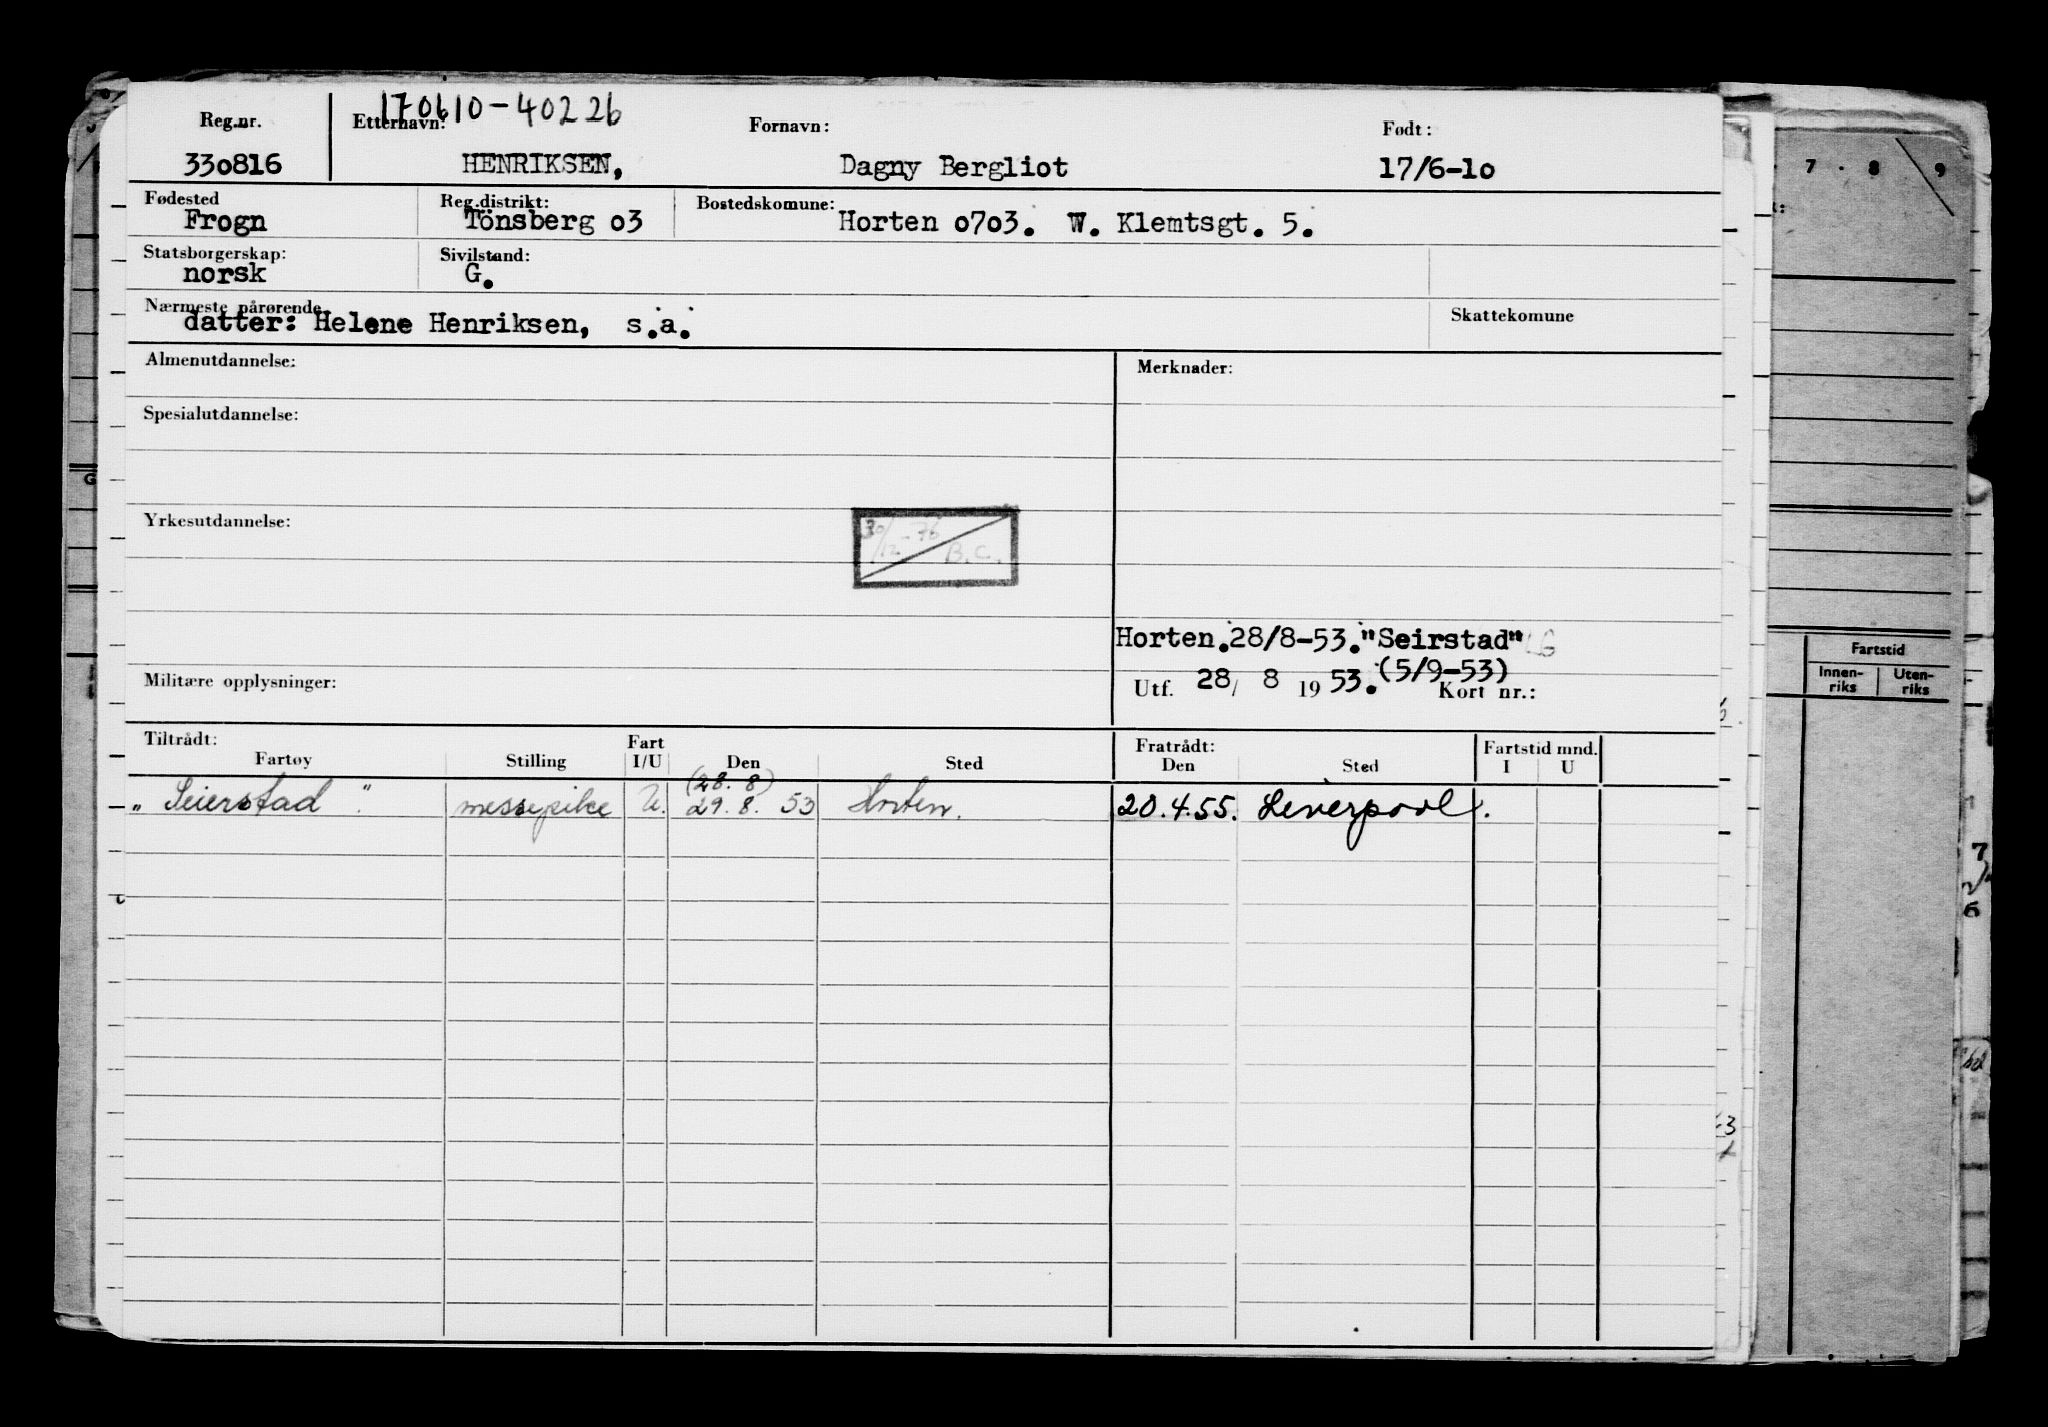 170610-40226
Reg.nr. Etternavn: Fornavn: Født:
330816 HENRIKSEN, Dagny Bergliot 17/6-10
Fødested Reg.distrikt: Bostedskomune:
Frogn Tönsberg o3 Horten o7o3. W. Klemtsgt. 5.
Statsborgerskap: Sivilstand:
norsk G.
Nærmeste pårørende Skattekomune
datter: Helene Henriksen, s.a.
Almenutdannelse: Merknader:
Spesialutdannelse:
Yrkesutdannelse:
30/12-76 B.C.
Horten.28/8-53."Seirstad"
(5/9-53)
Militære opplysninger: Utf. 28/ 8 19 53. Kort nr.:
Tiltrådt: Fart Fratrådt: Fartstid mnd.
Fartøy Stilling I/U Den Sted Den Sted I U
(28.8)
"Seierstad". messepike U. 29.8. 53 Horten. 20.4.55. Liverpool.
7 8 9
Fartstid
Innen-riks Uten-riks